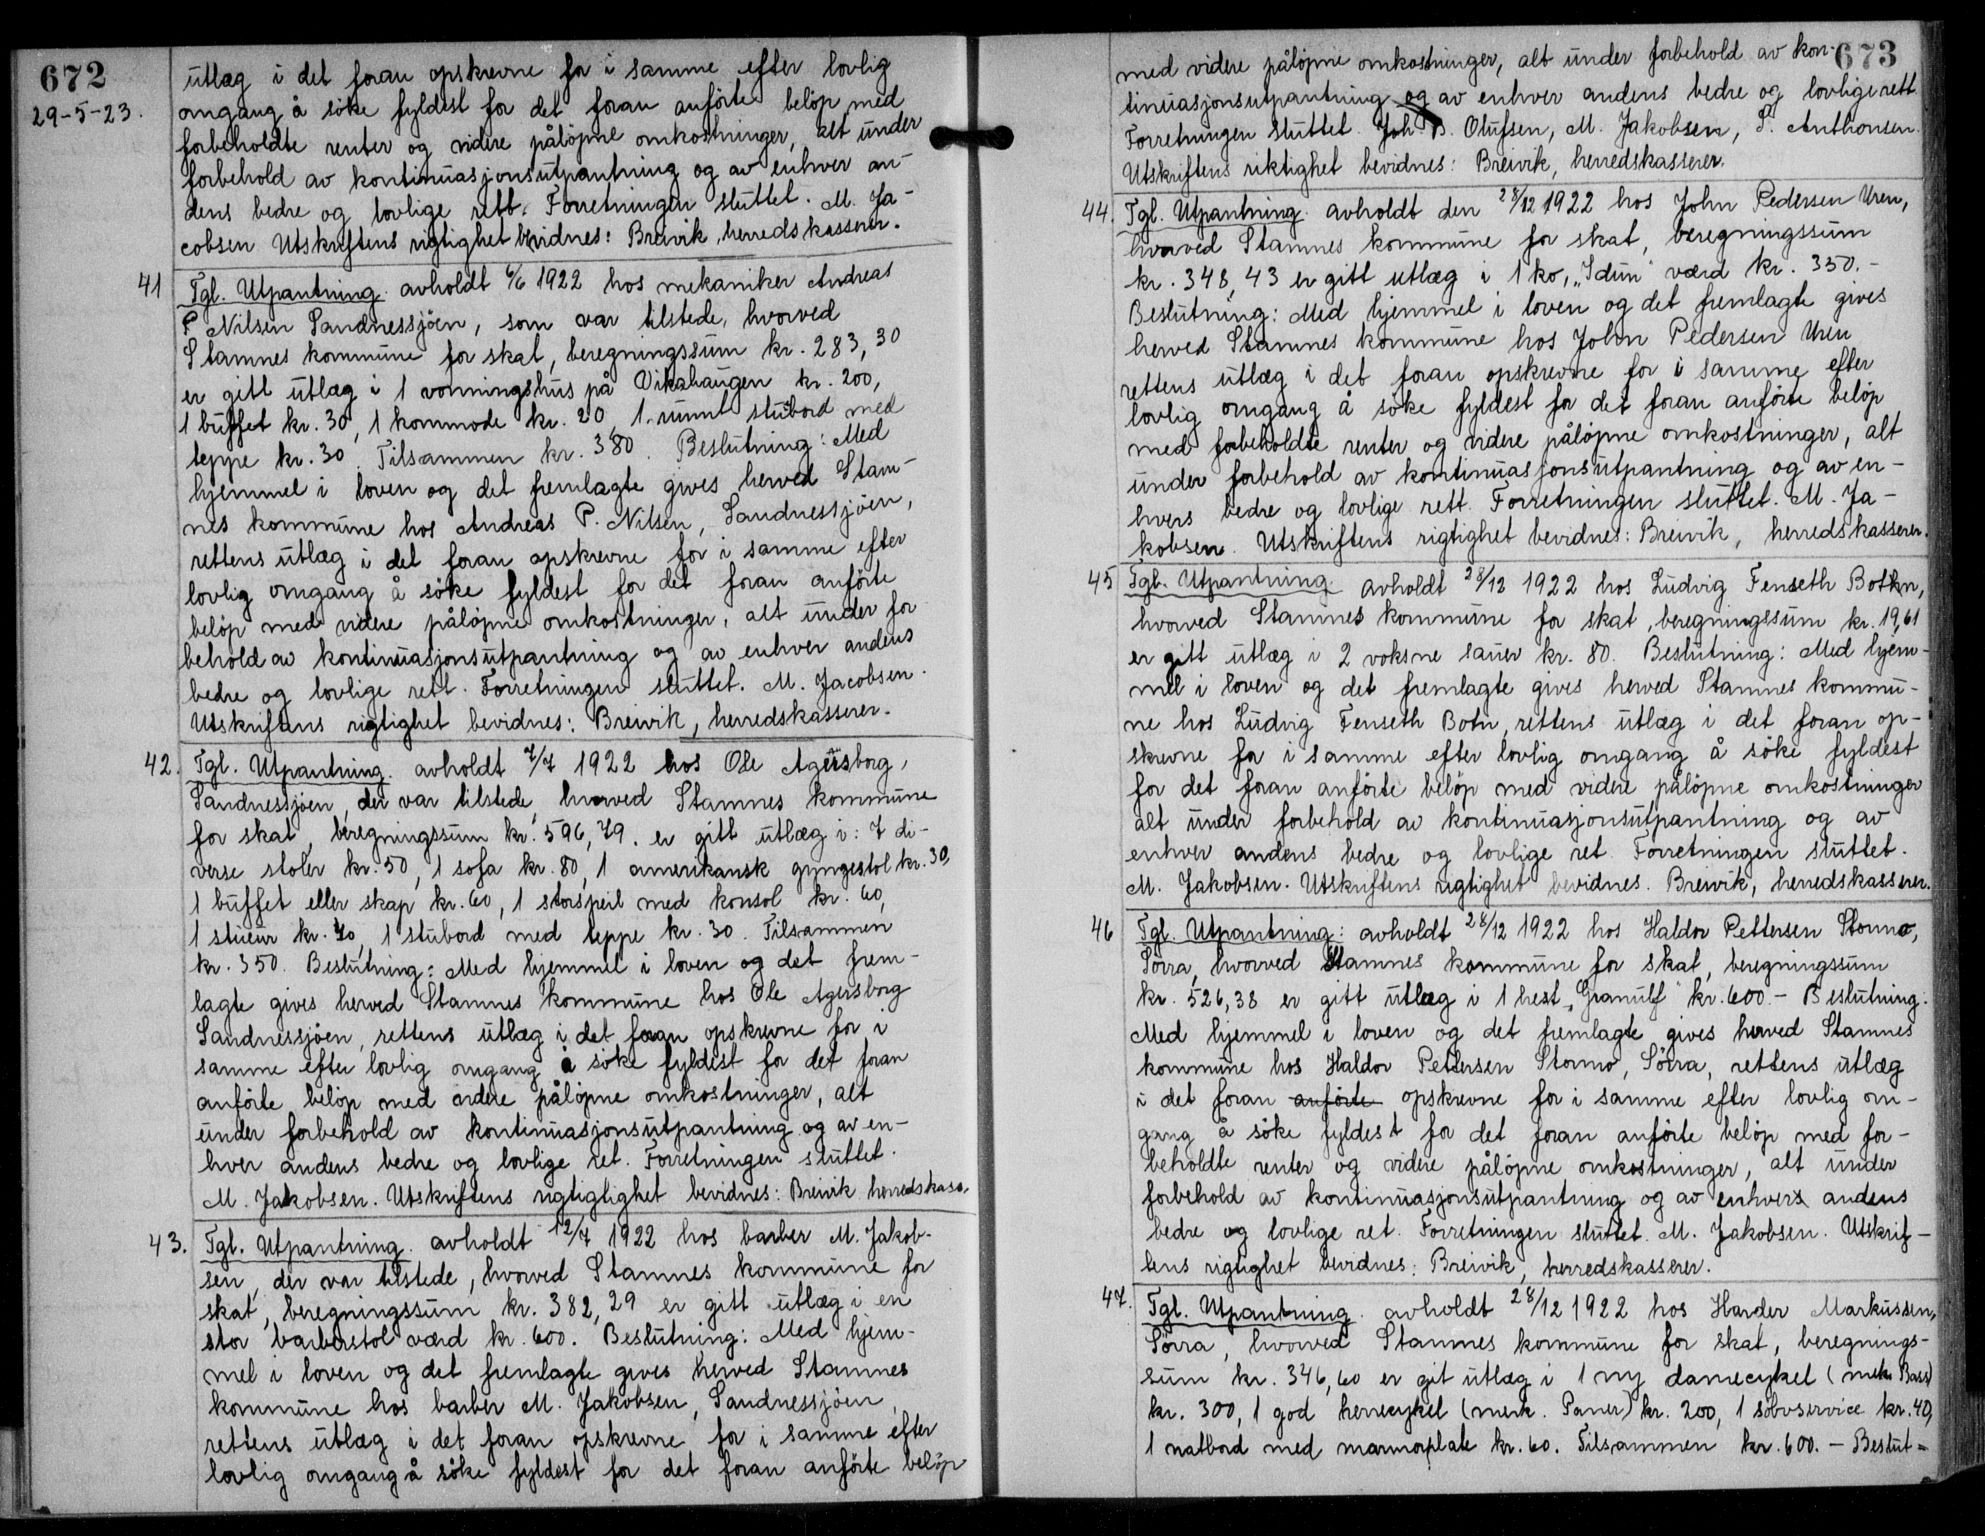 672
29-5-23.
utlæg i det foran opskrevne for i samme efter lovlig
omgang å söke fyldest for det foran anförte belöp med
forbeholdte renter og videre pålöpne omkostninger, alt under
forbehold av kontinuasjonsutpantning og av enhver an-
dens bedre og lovlige rett. Forretningen sluttet. M. Ja-
cobsen Utskriftens rigtighet bevidnes: Breivik, herredskasserer.
41 Tgl. Utpantning avholdt 6/6 1922 hos mekaniker Andreas
P. Nilsen Sandnessjöen, som var tilstede, hvorved
Stamnes kommune for skat, beregningssum kr. 283,30
er gitt utlæg i 1 vonningshus på Vikahaugen kr. 200,
1 buffet kr. 30, 1 kommode kr. 20, 1 rundt stubord med
teppe kr. 30. Tilsammen kr. 380. Beslutning: Med
hjemmel i loven og det fremlagte gives herved Stam-
nes kommune hos Andreas P. Nilsen, Sandnessjöen,
rettens utlæg i det foran opskrevne for i samme efter
lovlig omgang å söke fyldest for det foran anförte
belöp med videre pålöpne omkostninger, alt under for
behold av kontinuasjonsutpantning og av enhver andens
bedre og lovlige rett. Forretningen sluttet. M. Jacobsen.
Utskriftens rigtighet bevidnes: Breivik, herredskasserer.
42. Tgl. Utpantning avholdt 7/7 1922 hos Ole Agersborg,
Sandnessjöen, der var tilstede, hvorved Stamnes kommune
for skat, beregningssum kr. 596,79. er gitt utlæg i: 7 di-
verse stoler kr. 50, 1 sofa kr. 80, 1 amerikansk gyngestol kr. 30,
1 buffet eller skap kr. 60, 1 storspeil med konsol kr. 60,
1 stueur kr. 40, 1 stubord med teppe kr. 30. Tilsammen
kr. 350. Beslutning: Med hjemmel i loven og det frem-
lagte gives herved Stamnes kommune hos Ole Agersborg
Sandnessjöen, rettens utlæg i det foran opskrevne for i
samme efter lovlig omgang å söke fyldest for det foran
anförte belöp med videre pålöpne omkostninger, alt
under forbehold av kontinuasjonsutpantning og av en-
hver andens bedre og lovlige ret. Forretningen sluttet.
M. Jakobsen. Utskriftens rigtiglighet bevidnes: Breivik herredskass.
43. Tgl. Utpantning avholdt 12/7 1922 hos barber M. Jakob-
sen, der var tilstede, hvorved Stamnes kommune for
skat, beregningssum kr. 382,29 er gitt utlæg i en
stor barberstol værd kr. 600. Beslutning: Med hjem-
mel i loven og det fremlagte gives herved Stamnes
kommune hos barber M. Jakobsen, Sandnessjöen,
rettens utlæg i det foran opskrevne for i samme efter
lovlig omgang å söke fyldest for det foran anförte belöp
673
med videre pålöpne omkostninger, alt under forbehold av kon-
tinuasjonsutpantning og av enhver andens bedre og lovlige rett
Forretningen sluttet. Joh. B. Olufsen, M. Jakobsen, P. Anthonsen.
Utskriftens riktighet bevidnes: Breivik, herredskasserer.
44. Tgl. Utpantning avholdt den 28/12 1922 hos John Pedersen Uren,
hvorved Stamnes kommune for skat, beregningssum
kr. 348,43 er gitt utlæg i 1 ko, "Idun" værd kr. 350.-
Beslutning: Med hjemmel i loven og det fremlagte gives
herved Stamnes kommune hos John Pedersen Uren
rettens utlæg i det foran opskrevne for i samme efter
lovlig omgang å söke fyldest for det foran anförte belöp
med forbeholdte renter og videre pålöpne omkostninger, alt
under forbehold av kontinuasjonsutpantning og av en-
hvers bedre og lovlige rett. Forretningen sluttet. M. Ja-
kobsen. Utskriftens rigtighet bevidnes: Breivik, herredskasserer.
45 Tgb. Utpantning avholdt 28/12 1922 hos Ludvig Fenseth Botn,
hvorved Stamnes kommune for skat, beregningssum kr. 19,61
er gitt utlæg i 2 voksne sauer kr. 80. Beslutning: Med hjem-
mel i loven og det fremlagte gives herved Stamnes kommu-
ne hos Ludvig Fenseth Botn, rettens utlæg i det foran op-
skrevne for i samme efter lovlig omgang å söke fyldest
for det foran anförte belöp med videre pålöpne omkostninger
alt under forbehold av kontinuasjonsutpantning og av
enhver andens bedre og lovlige ret. Forretningen sluttet.
M. Jakobsen. Utskriftens rigtighet bevidnes. Breivik, herredskasserer.
46 Tgl. Utpantning: avholdt 28/12 1922 hos Haldor Pettersen Stormo,
Sörra, hvorved Stamnes kommune for skat, beregningssum
kr. 526,38 er gitt utlæg i 1 hest "Granulf" kr. 600.- Beslutning:
Med hjemmel i loven og det fremlagte gives herved Stamnes
kommune hos Haldor Pettersen Stormo, Sörra, rettens utlæg
i det foran anförte opskrevne for i samme efter lovlig om-
gang å söke fyldest for det foran anförte belöp med for-
beholdte renter og videre pålöpne omkostninger, alt under
forbehold av kontinuasjonsutpantning og av enhvers andens
bedre og lovlige ret. Forretningen sluttet. M. Jakobsen. Utskrif-
tens rigtighet bevidnes: Breivik, herredskasserer.
47. Tgl. Utpantning avholdt 28/12 1922 hos Harder Markussen,
Sörra, hvorved Stamnes kommune for skat, beregnings-
sum kr. 346,60 er git utlæg i 1 ny damecykel (merk Bass)
kr. 300, 1 god herrecykel (merk. Paner) kr. 200, 1 sölvservice kr. 40,
1 natbord med marmorplate kr. 60. Tilsammen kr. 600. - Beslut=